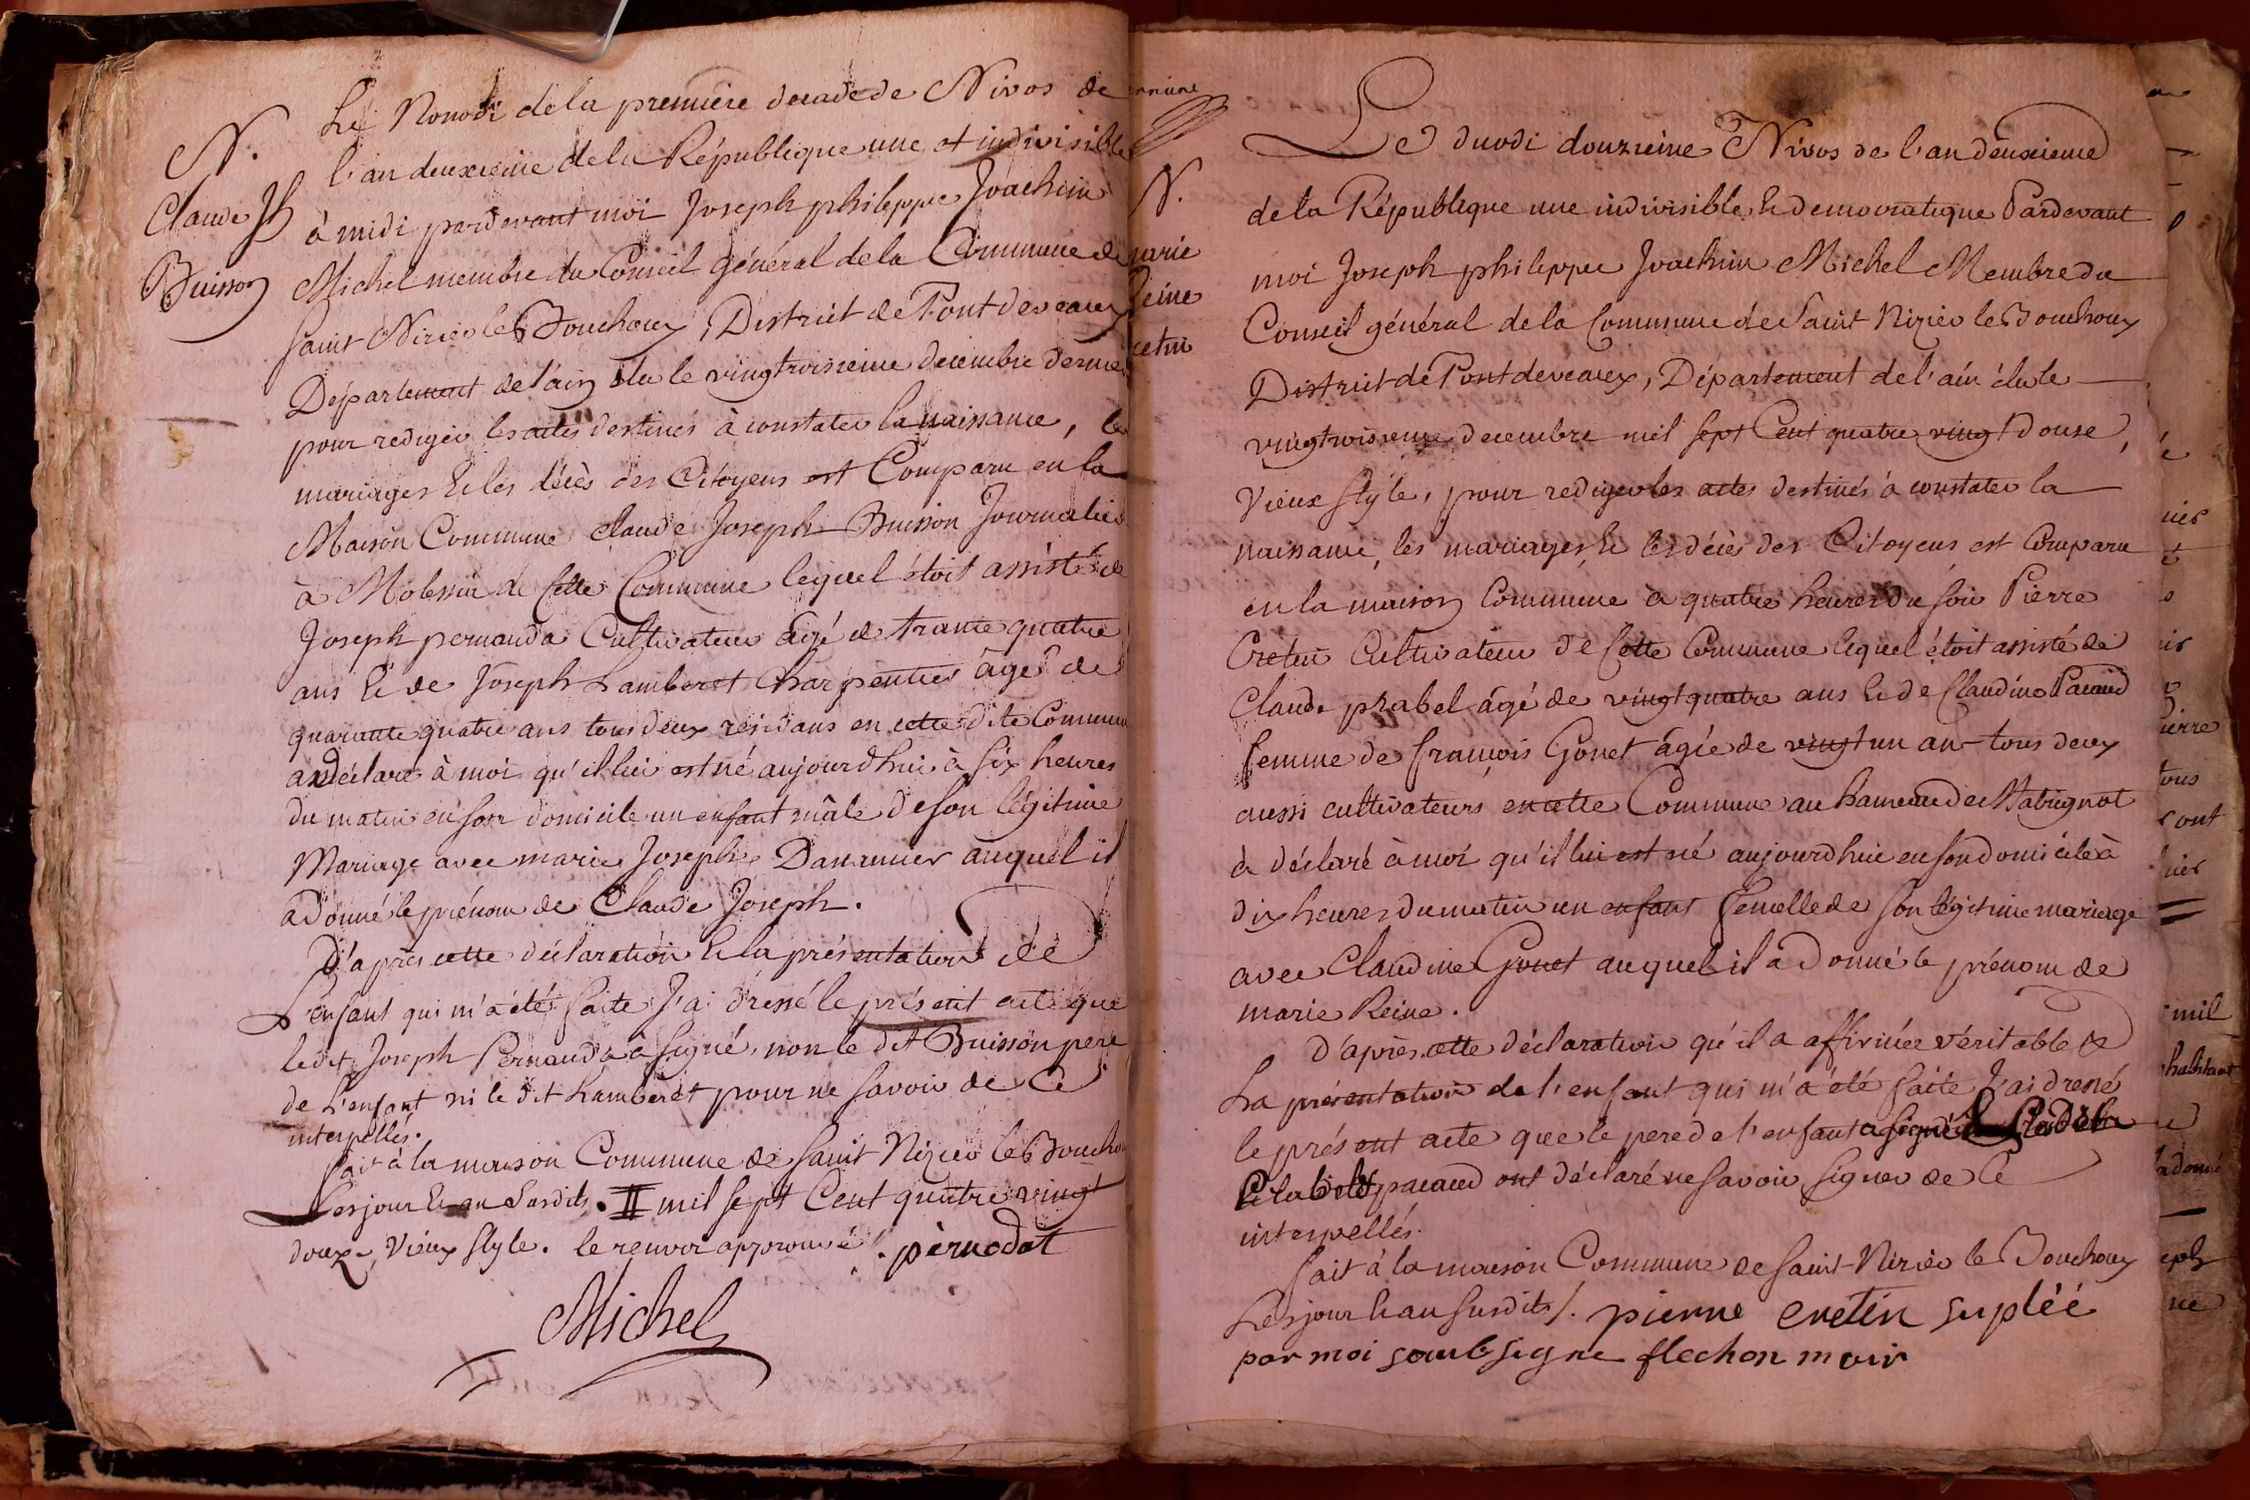 N.
Claude Jh
Buisson
Le Nonodi de la première decade de Nivos de
l'an deuxieme de la République une et indivisible
à midi pardevant moi Joseph philippe Joachim
Michel membre du Conseil général de la Commune de
Saint Nizier le Bouchoux, District de Pont de veaux
Département de l'ain élu le vingtroisieme decembre dernier
pour rediger les actes destinés à constater la naissance, les
mariages & les décès des Citoyens est Comparu en la
Maison Commune Claude Joseph Buisson Journalier
à Molessin de Cette Commune lequel étoit assisté de
Joseph pernauda Cultivateur âgé de trante quatre
ans & de Joseph Lamberet Charpentier âgé de
quarante quatre ans tous deux residans en cette dite Commune
a déclaré à moi qu'il lui est né aujourdhui à six heures
du matin en son domicile un enfant mâle de son légitime
Mariage avec marie Josephe Danancier auquel il
a donné le prénom de Claude Joseph.
D'après cette déclaration & la présentation de
L'enfant qui m'a été faite J'ai dressé le présent acte que
ledit Joseph Pernauda a signé, non le dit Buisson pere
de L'enfant ni le dit Lamberet pour ne savoir de Ce
interpellés.
fait à la maison Commune de Saint Nizier le Boucho
Les jour & an Susdits. II mil sept Cent quatre vingt
douze, Vieux Style. le renvoi approuvé. pèrnodat
Michel
N.
marie
Reine
cretin
Le duodi douzieme Nivos de l'an deuxieme
de la République une indivisible & democratique Pardevant
moi Joseph philippe Joachim Michel Membre du
Conseil général de la Commune de Saint Nizier le Bouchoux
District de Pont de veaux, Département de l'ain élu le
vingtroisieme decembre mil sept Cent quatre vingt douse,
Vieux Style, pour rediger les actes destinés à constater la
naissance, les mariages & les décès des Citoyens est Comparu
en la maison Commune a quatre heures du soir Pierre
Cretin Cultivateur de Cette Commune lequel étoit assisté de
Claude prabel âgé de vingt quatre ans & de Claudine Pacaud
femme de françois Gonet âgée de vingt un an tous deux
aussi cultivateurs en cette Commune au hameau de
à déclaré à moi qu'il lui est né aujourdhui en son domicile à
dix heures du matin un enfant femelle de son légitime mariage
avec Claudine Gonet auquel il a donné le prénom de
marie Reine.
D'après cette déclaration qu'il a affirmée véritable &
La présentation de l'enfant qui m'a été faite J'ai dressé
le présent acte que le pere de l'enfant a signé
pacaud ont déclaré ne savoir signer de Ce
interpellés.
fait à la maison Commune de Saint Nizier le Bouchoux
Les jour & an Susdits/. pierre cretin suplée
par moi soubsigne flechon mair